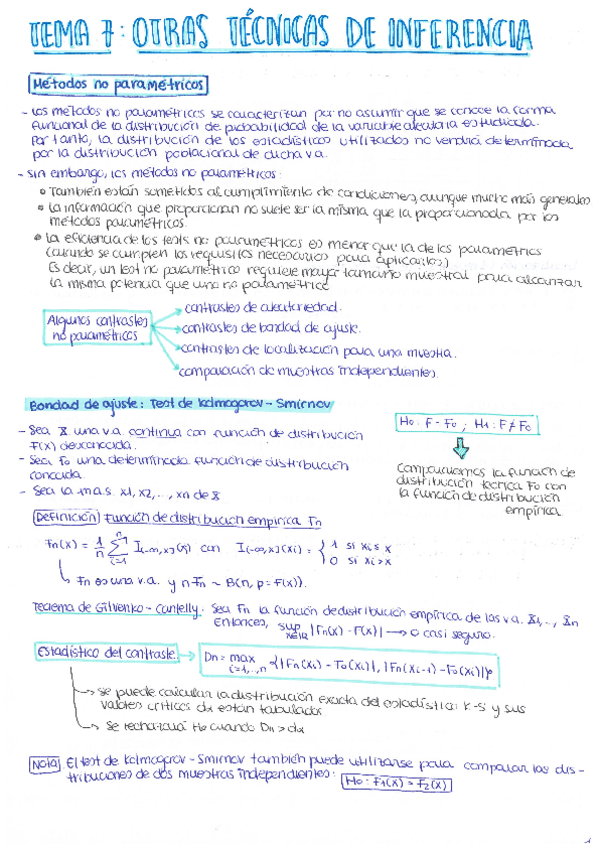 TEMA 7: OTRAS TÉCNICAS DE INFERENCIA
Métodos no paramétricos
- Los métodos no paramétricos se caracterizan por no asumir que se conoce la forma
funcional de la distribución de probabilidad de la variable aleatoria estudiada.
Por tanto, la distribución de los estadísticos utilizados no vendrá determinada
por la distribución poblacional de dicha v.a.
- Sin embargo, los métodos no paramétricos:
• También están sometidos al cumplimiento de condiciones, aunque mucho más generales
• La información que proporcionan no suele ser la misma que la proporcionada por los
métodos paramétricos.
• La eficiencia de los tests no paramétricos es menor que la de los paramétrics
(cuando se cumplen los requisitos necesarios para aplicarlos)
Es decir, un test no paramétrico requiere mayor tamaño muestral para alcanzar
la misma potencia que uno no paramétrico
Algunos contrastes
no paramétricos
→ contrastes de aleatoriedad.
→ contrastes de bondad de ajuste.
→ contrastes de localización para una muestra.
comparación de muestras independientes.
Bondad de ajuste: Test de Kolmogorov - Smirnov
- Sea X una v.a. continua con función de distribución
F(x) desconocida.
- Sea F₀ una determinada función de distribución
conocida.
- Sea la m.a.s. x1, x2, ..., xn de X
H₀: F = F₀ ; H₁: F ≠ F₀
Comparamos la función de
distribución teórica F₀ con
la función de distribución
empírica
Definición Función de distribución empírica Fn
Fn(x) = 1/n Σ(i=1, n) I(-∞,x](xi) con I(-∞,x](xi) = { 1 si xi ≤ x
0 si xi > x
Fn es una v.a. y nFn ~ B(n, p = F(x)).
Teorema de Glivenko - Cantelly: Sea Fn la función de distribución empírica de las v.a. X1, .., Xn
Entonces, sup x∈ℝ |Fn(x) - F(x)| → 0 casi seguro.
Estadístico del contraste → Dn = max i=1,..,n {|Fn(xi) - F₀(xi)|, |Fn(xi-1) - F₀(xi)|}
→ se puede calcular la distribución exacta del estadístico K-S y sus
valores críticos dα están tabulados
→ Se rechazará H₀ cuando Dn > dα
Nota El test de Kolmogorov - Smirnov también puede utilizarse para comparar las dis-
tribuciones de dos muestras independientes: H₀: F1(x) = F2(x)